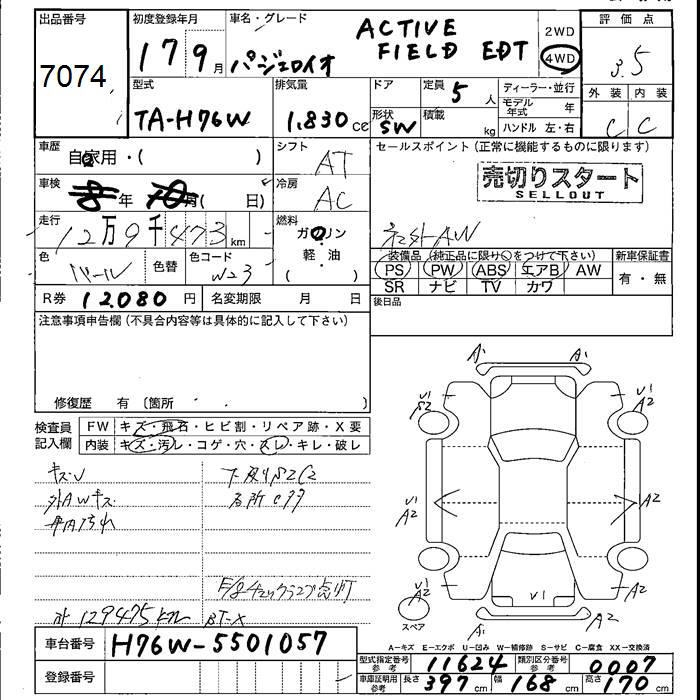 出品番号 初度登録年月 車名・グレード 2WD 評価点
7074 17 9月 パジェロイオ ACTIVE FIELD EDT 4WD 3.5
型式 排気量 ドア 定員 5人 ディーラー・並行 外装 内装
TA-H76W 1.830cc 形状 SW 積載 kg モデル年式 年 C C
ハンドル 左・右
車歴 自家用・( ) シフト AT セールスポイント (正常に機能するものに限ります)
車検 年 月( 日) 冷房 AC 売切りスタート
SELLOUT
走行 12万9千473km 燃料 ガソリン 社外AW
軽・油
( )
装備品 (純正品に限り○をつけて下さい) 新車保証書
色 パール 色替 色コード W23 PS PW ABS エアB AW 有・無
SR ナビ TV カワ
R券 12,080円 名変期限 月 日 後日品
注意事項申告欄(不具合内容等は具体的に記入して下さい)
修復歴 有 〔箇所 〕
検査員記入欄 FW キズ・飛石・ヒビ割・リペア跡・X要
内装 キズ・汚レ・コゲ・穴・スレ・キレ・破レ
キズ
外AWキズ
内汚れ
チェックランプ点灯
129475
車台番号 H76W-5501057
登録番号
A1 A1
A2 A2
V1
A2 A2
A1 A2
スペア
A-キズ E-エクボ U-凹み W-補修跡 S-サビ C-腐食 XX-交換済
型式指定番号 参考 11624 類別区分番号 参考 0007
車庫証明用 参考 長さ 397cm 幅 168cm 高さ 170cm